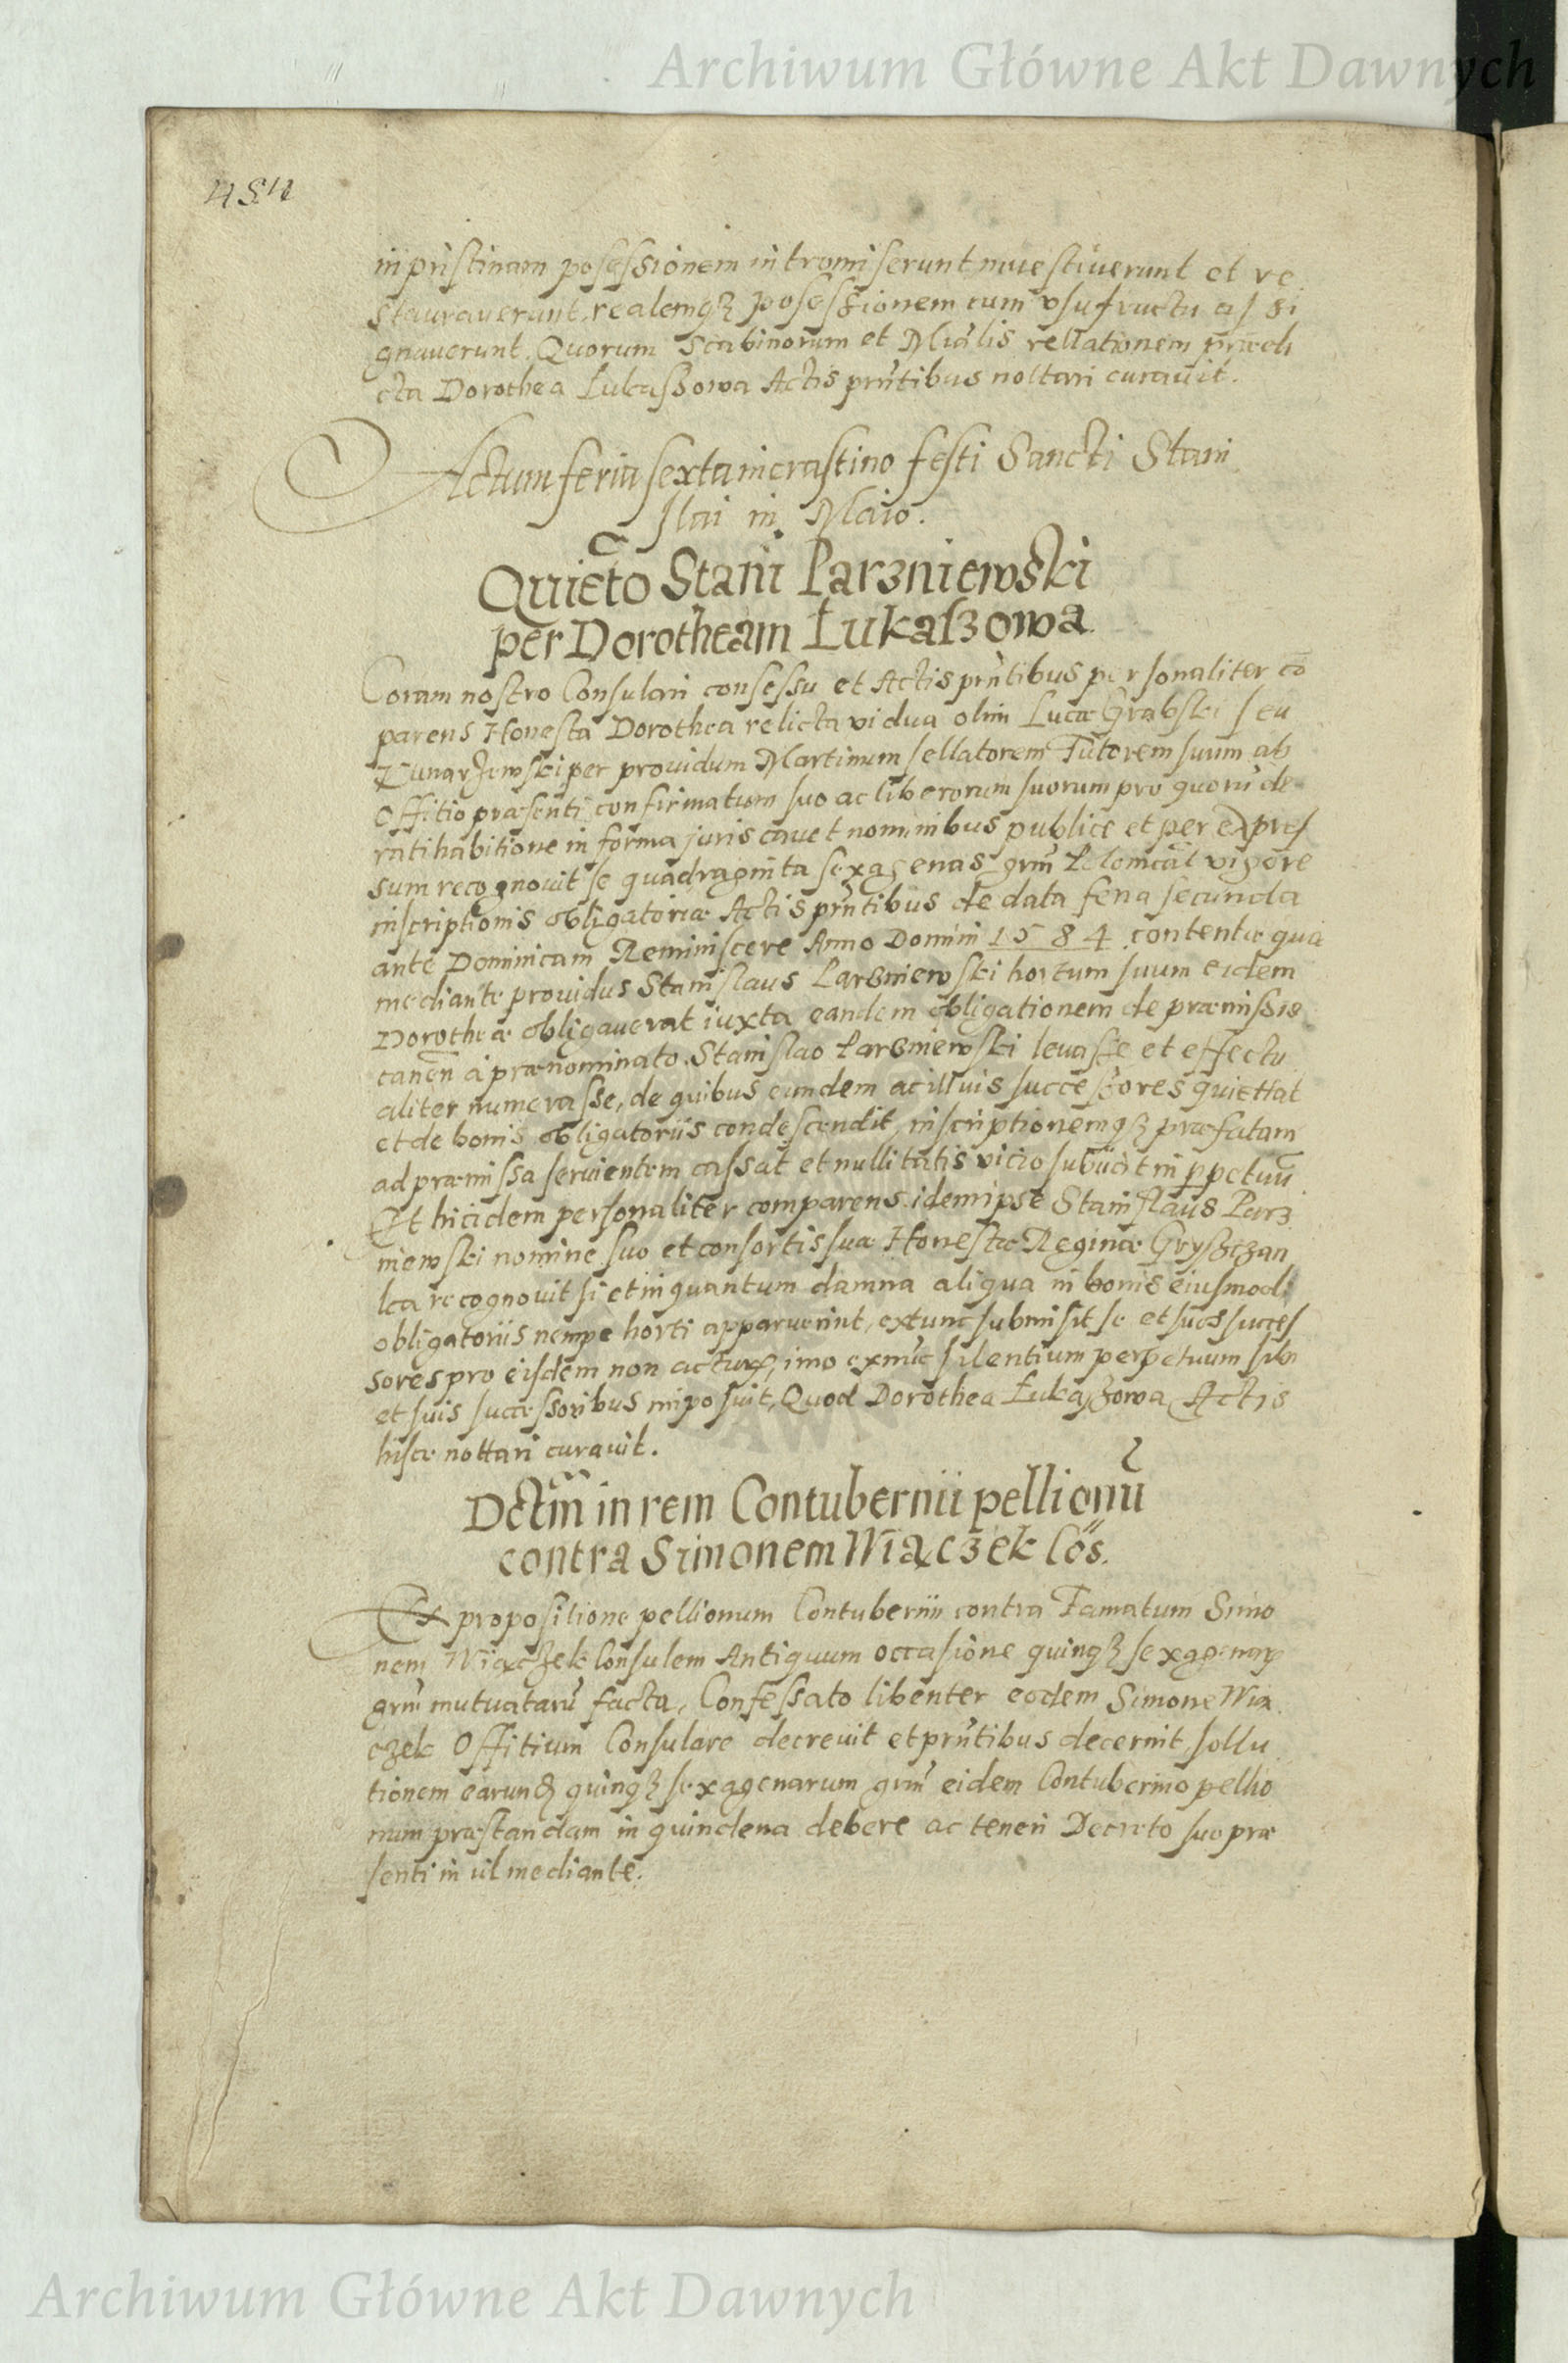 Archiwum Główne Akt Dawnych
454
in pristinam possessionem intromiserunt investiverunt et re
stauraverunt, realemqȝ possessionem cum vsufructu assi
gnaverunt. Quorum Scabinorum et Mĩalis rellationem prædi
cta Dorothea Lukaßowa Actis prñtibus nottari curavit.
Actum feria sexta in crastino festi Sancti Stani
slai in Maio.
Quieto Stani Parzniewski
per Dorotheam Łukaszowa
Coram nostro Consulari consessu et Actis prñtibus personaliter cõ
parens Honesta Dorothea relicta vidua olim Lucæ Grabski seu
per providum Martinum sellatorem Tutorem suum ab
Offitio præsenti confirmatum suo ac liberorum suorum pro quorũ de
ratihabitione in forma juris cavet nominibus publice et per expres
sum recognovit se quadraginta sexagenas grm̃ Polonical vigore
inscriptionis obligatoriæ Actis prñtibus de data feria secunda
ante Dominicam Reminiscere Anno Domini 1584 contentæ qua
mediante providus Stanislaus Parzniewski hortum suum eidem
Dorotheæ obligaverat iuxta eandem obligationem de præmissis
tanẽn à prænominato Stanislao Parzniewski levasse et effectu
aliter numerasse, de quibus eundem ac illius successores quiettat
et de bonis obligatoriis condescendit, inscriptionemqȝ præfatam
ad præmissa servientem cassat et nullitatis vicio subiicit in ppetuũ
Et hic idem personaliter comparens idem ipse Stanislaus Parz
niewski nomine suo et consortis suæ Honestæ Reginæ Gryszczan
ka recognovit si et in quantum damna aliqua in bonis eiusmodi
obligatoriis nempe horti apparuerint, extunc submisit se et suos succes
sores pro eisdem non acturos, imo exnũc silentium perpetuum sibi
et suis successoribus imposuit, Quod Dorothea Lukaszowa Actis
hisce nottari curavit.
Dctm̃ in rem Contubernii pellionũ
contra Simonem Wiączek Cos.
Ex propositione pellionum Contubernii contra Famatum Simo
nem Wiączek Consulem Antiquum occasione quinqȝ sexagenarꝝ
grm̃ mutuatarũ facta, Confessato libenter eodem Simone Wią
czek Offitium Consulare decrevit et prñtibus decernit, sollu
tionem earundꝫ quinqȝ sexagenarum grm̃ eidem Contubernio pellio
num præstandam in quindena debere ac teneri Decreto suo præ
senti in vil mediante.
Archiwum Główne Akt Dawnych